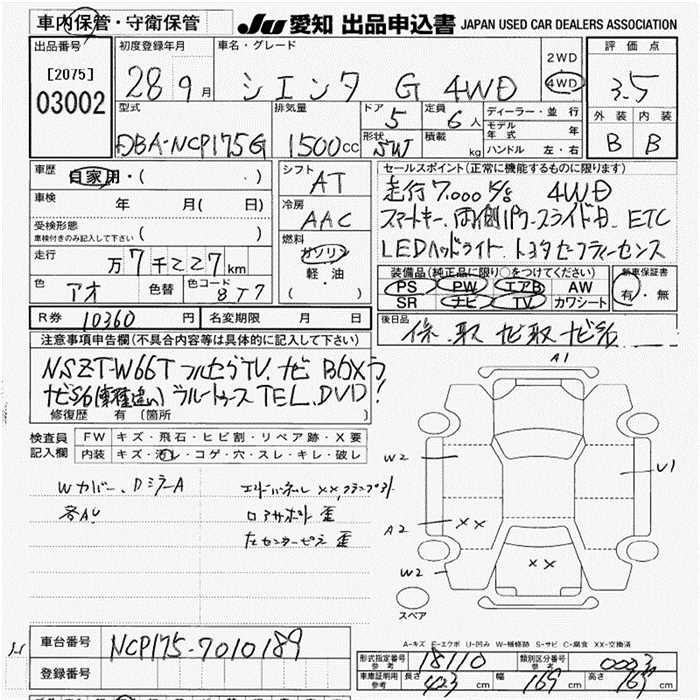 車内保管・守衛保管
JU 愛知 出品申込書 JAPAN USED CAR DEALERS ASSOCIATION
出品番号
[2075]
03002
初度登録年月
28 9月
車名・グレード
シエンタ G 4WD
2WD
4WD
評価点
3.5
外装 内装
B B
型式
DBA-NCP175G
排気量
1500cc
ドア
5
形状
SW
定員
6人
積載
kg
ディーラー・並行
モデル年式 年
ハンドル 左・右
車歴
自家用・( )
車検
年 月( 日)
受検形態
車検付きのみ記入して下さい ( )
走行
万7千227km
色
アオ
色替
色コード
8T7
シフト
AT
冷房
AAC
燃料
ガソリン
軽・油
( )
セールスポイント(正常に機能するものに限ります)
走行7,000k/s 4WD
スマートキー、両側Pワースライドドア、ETC
LEDヘッドライト トヨタセーフティーセンス
装備品(純正品に限り○をつけてください)
PS PW エアB AW
SR ナビ TV カワシート
新車保証書
有・無
R券 10360円
名変期限 月 日
後日品
保、取 ナビ取 ナビS/G
注意事項申告欄(不具合内容等は具体的に記入して下さい)
NSZT-W66T フルセグTV、ナビ BOXう
ナビS/G(車種違い) ブルートゥース TEL、DVD!
修復歴 有 〔箇所 〕
検査員記入欄
FW キズ・飛石・ヒビ割・リペア跡・X要
内装 キズ・汚レ・コゲ・穴・スレ・キレ・破レ
Wカバー、DミラーA
各AU
エンドパネルXX,
ロアサポート歪
左センターピラー歪
A1
W2
U1
A2
XX
XX
W2
スペア
A-キズ E-エクボ U-凹み W-補修跡 S-サビ C-腐食 XX-交換済
車台番号
NCP175-7010189
登録番号
形式指定番号 参考 18110
類別区分番号 参考 0003
車庫証明 参考 長さ 423cm 幅 169cm 高さ 167cm